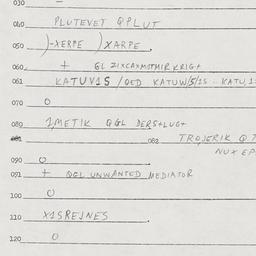 030 –
040 PLUTEVET QPLUT
050 )-XERPE )XARPE.
060 + GL ZIXCAXMSTHIR KRIG+
061 KATUV1S /QED KATUW/S/1S
070 O
080 QGL DERS+LUG+
081 082 TROJERIK Q
NUX EP
090 O
091 + QGL UNWANTED MEDIATOR
100 O
110 X1SREJNES .
120 O